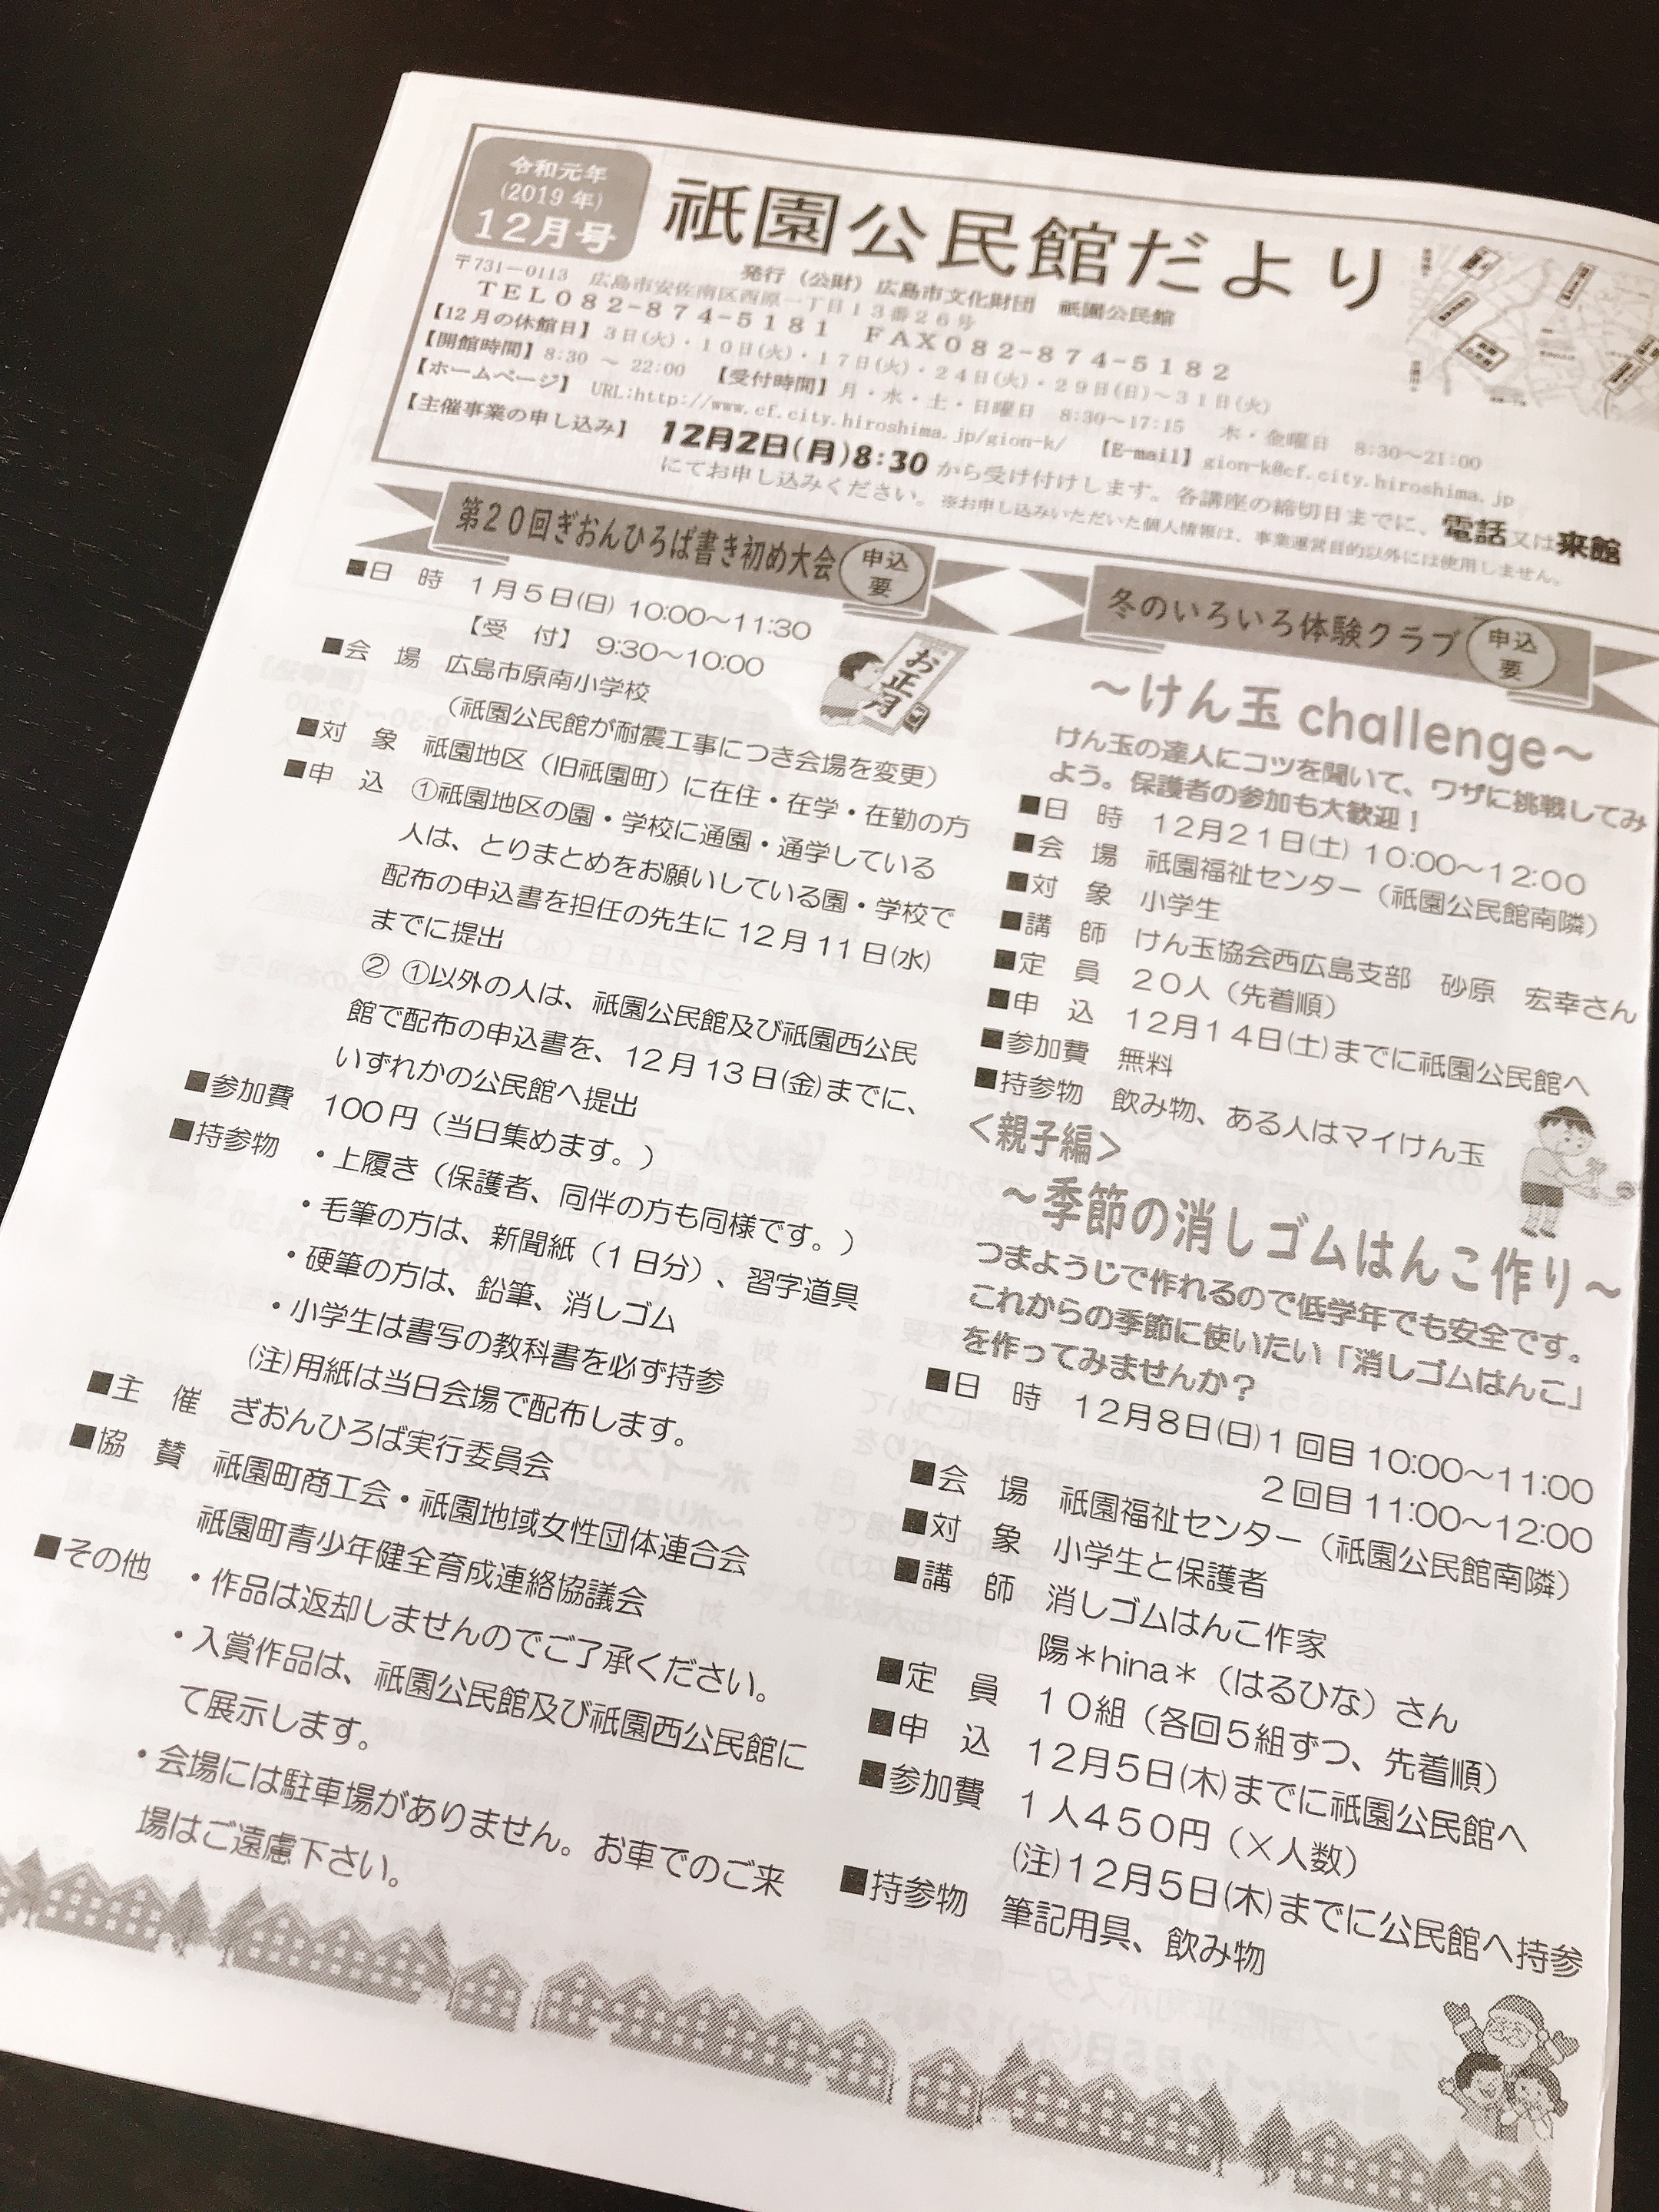 令和元年
(2019年)
12月号
祇園公民館だより
発行（公財）広島市文化財団　祇園公民館
〒731－0113　広島市安佐南区西原一丁目13番26号
TEL082－874－5181　FAX082－874－5182
【12月の休館日】3日(火)・10日(火)・17日(火)・24日(火)・29日(日)～31日(火)
【開館時間】8:30 ～ 22:00　【受付時間】月・水・土・日曜日　8:30～17:15　木・金曜日　8:30～21:00
【ホームページ】URL:http://www.cf.city.hiroshima.jp/gion-k/　【E-mail】gion-k@cf.city.hiroshima.jp
【主催事業の申し込み】12月2日(月)8:30から受け付けします。各講座の締切日までに、電話又は来館
にてお申し込みください。※お申し込みいただいた個人情報は、事業運営目的以外には使用しません。
第20回ぎおんひろば書き初め大会
申込
要
■日　時　1月5日(日) 10:00～11:30
【受　付】 9:30～10:00
■会　場　広島市原南小学校
（祇園公民館が耐震工事につき会場を変更）
■対　象　祇園地区（旧祇園町）に在住・在学・在勤の方
■申　込　①祇園地区の園・学校に通園・通学している
人は、とりまとめをお願いしている園・学校で
配布の申込書を担任の先生に12月11日(水)
までに提出
② ①以外の人は、祇園公民館及び祇園西公民
館で配布の申込書を、12月13日(金)までに、
いずれかの公民館へ提出
■参加費　100円（当日集めます。）
■持参物　・上履き（保護者、同伴の方も同様です。）
・毛筆の方は、新聞紙（1日分）、習字道具
・硬筆の方は、鉛筆、消しゴム
・小学生は書写の教科書を必ず持参
(注)用紙は当日会場で配布します。
■主　催　ぎおんひろば実行委員会
■協　賛　祇園町商工会・祇園地域女性団体連合会
祇園町青少年健全育成連絡協議会
■その他　・作品は返却しませんのでご了承ください。
・入賞作品は、祇園公民館及び祇園西公民館に
て展示します。
・会場には駐車場がありません。お車でのご来
場はご遠慮下さい。
お正月
冬のいろいろ体験クラブ
申込
要
～けん玉 challenge～
けん玉の達人にコツを聞いて、ワザに挑戦してみ
よう。保護者の参加も大歓迎！
■日　時　12月21日(土) 10:00～12:00
■会　場　祇園福祉センター（祇園公民館南隣）
■対　象　小学生
■講　師　けん玉協会西広島支部　砂原　宏幸さん
■定　員　20人（先着順）
■申　込　12月14日(土)までに祇園公民館へ
■参加費　無料
■持参物　飲み物、ある人はマイけん玉
＜親子編＞
～季節の消しゴムはんこ作り～
つまようじで作れるので低学年でも安全です。
これからの季節に使いたい「消しゴムはんこ」
を作ってみませんか？
■日　時　12月8日(日)1回目 10:00～11:00
2回目 11:00～12:00
■会　場　祇園福祉センター（祇園公民館南隣）
■対　象　小学生と保護者
■講　師　消しゴムはんこ作家
陽＊hina＊（はるひな）さん
■定　員　10組（各回5組ずつ、先着順）
■申　込　12月5日(木)までに祇園公民館へ
■参加費　1人450円（×人数）
(注)12月5日(木)までに公民館へ持参
■持参物　筆記用具、飲み物